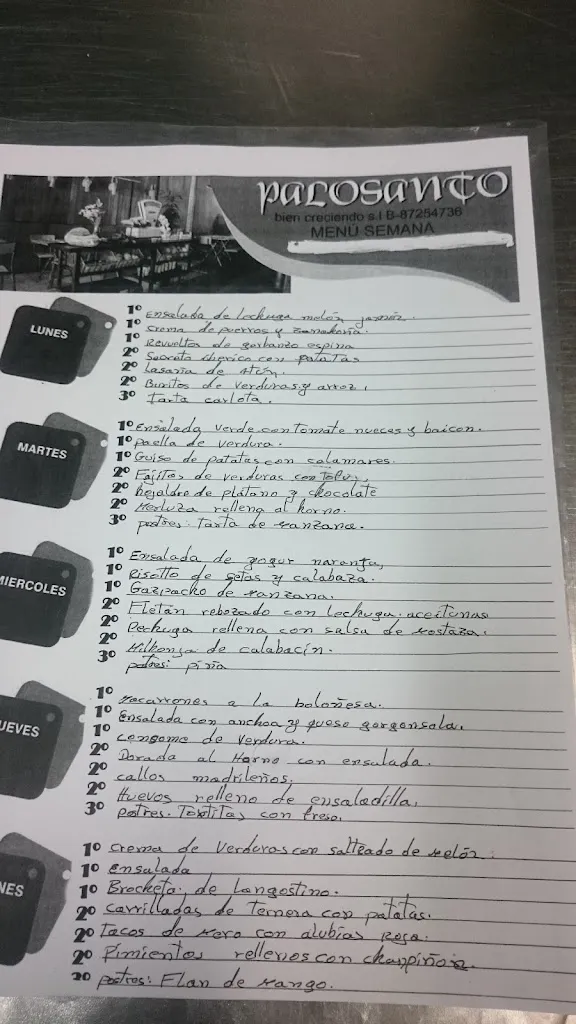 PALOSANTO
bien creciendo s.l B-87254736
MENÚ SEMANA
LUNES
1º Ensalada de Lechuga melón jamón.
1º crema de puerros y zanahoria.
1º Revueltos de garbanzo espina
2º Secreto iberico con patatas
2º Lasaña de Atún.
2º Burritos de verduras y arroz,
3º tarta carlota.
MARTES
1º Ensalada verde con tomate nueces y baicon.
1º paella de verdura.
1º Guiso de patatas con calamares.
2º Fajitos de verduras con
2º hojaldre de plátano y chocolate
2º Merluza rellena al horno.
3º postres: tarta de manzana.
MIERCOLES
1º Ensalada de yogur naranja,
1º Risotto de setas y calabaza.
1º Gazpacho de manzana.
2º Fletán rebozado con Lechuga. aceitunas
2º Pechuga rellena con salsa de mostaza.
2º de calabacín.
3º postres: piña
UEVES
1º Macarrones a la boloñesa.
1º Ensalada con anchoa y queso gorgonsola,
1º consome de verdura.
2º Dorada al Horno con ensalada.
2º callos madrileños.
2º Huevos relleno de ensaladilla,
3º postres. Tortitas con fresa,
NES
1º crema de verduras con salteado de melón.
1º ensalada
1º Brocheta de Langostino.
2º carrilladas de Ternera con patatas.
2º Tacos de mero con alubias Roja.
2º Pimientos rellenos con chanpiñon.
3º postres: Flan de mango.